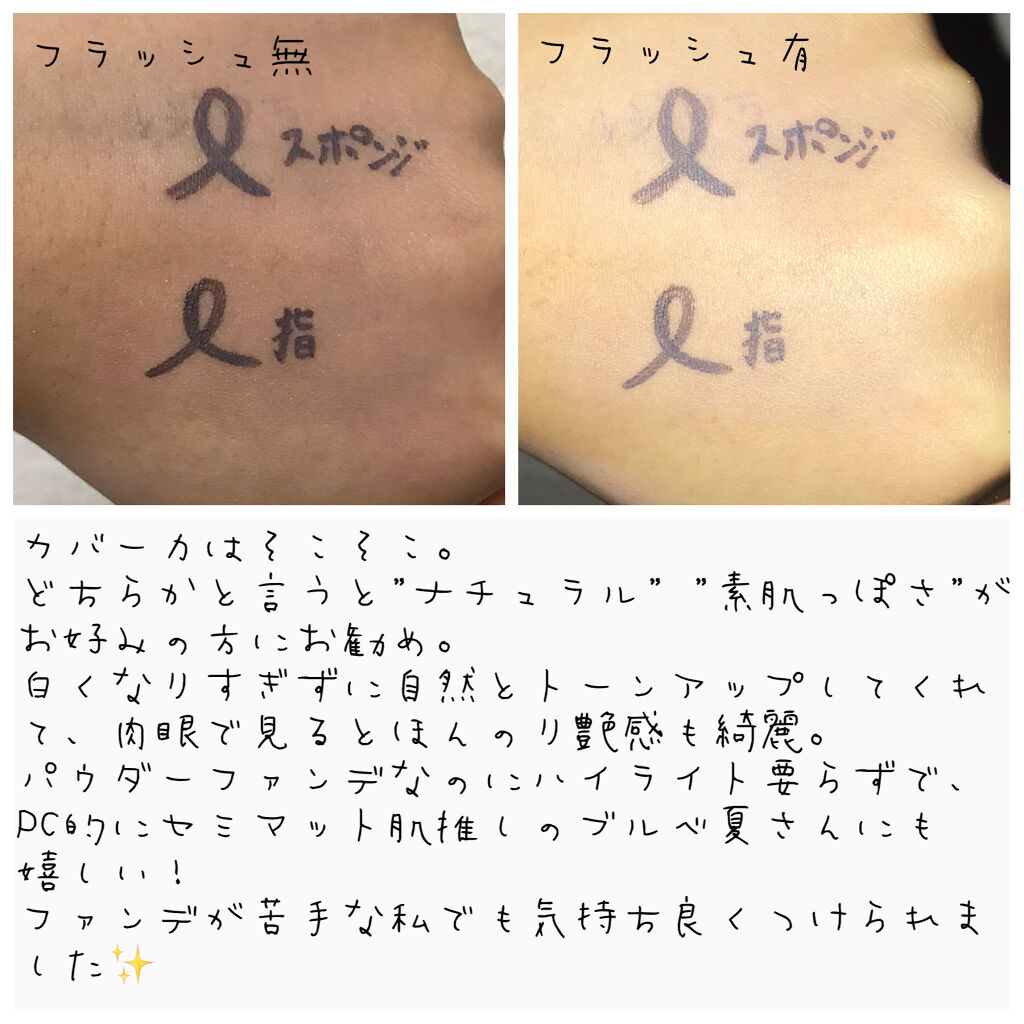 フラッシュ無
スポンジ
指
フラッシュ有
スポンジ
指
カバー力はそこそこ。
どちらかと言うと”ナチュラル” ”素肌っぽさ”が
お好みの方にお勧め。
白くなりすぎずに自然とトーンアップしてくれ
て、肉眼で見るとほんのり艶感も綺麗。
パウダーファンデなのにハイライト要らずで、
PC的にセミマット肌推しのブルベ夏さんにも
嬉しい！
ファンデが苦手な私でも気持ち良くつけられま
した✨